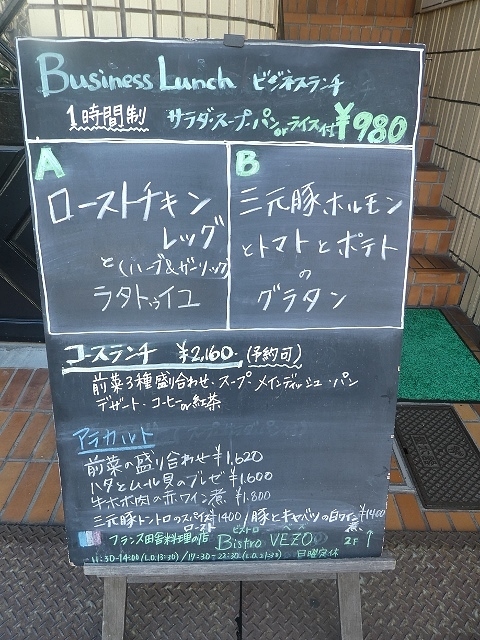 Business Lunch ビジネスランチ
1時間制 サラダ・スープ・パンorライス付 ¥980
A
ローストチキン
レッグ
(ハーブ&ガーリック)
と
ラタトゥイユ
B
三元豚ホルモン
とトマトとポテト
の
グラタン
コースランチ ¥2,160- (予約可)
前菜3種盛り合わせ・スープ メインディッシュ・パン
デザート・コーヒーor紅茶
アラカルト
前菜の盛り合わせ ¥1,620
ハタとムール貝のブレゼ ¥1,600
牛ホホ肉の赤ワイン煮 ¥1,800
三元豚トントロのスパイスロースト ¥1400 / 豚とキャベツの白ワイン煮 ¥1400
フランス田舎料理の店 ビストロ ベーズ Bistro VEZO 2F ↑
11:30-14:00(L.O.13:30) / 17:30-22:30(L.O.21:30) 日曜定休